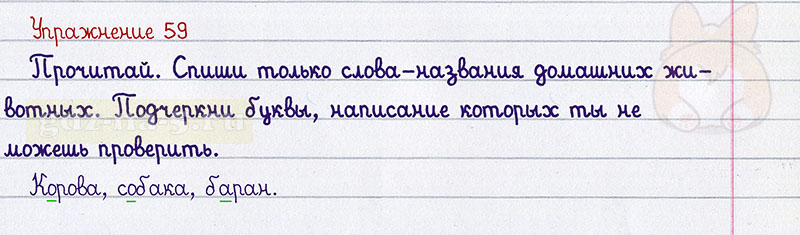 Упражнение 59
Прочитай. Спиши только слова-названия домашних жи-
вотных. Подчеркни буквы, написание которых ты не
можешь проверить.
Корова, собака, баран.